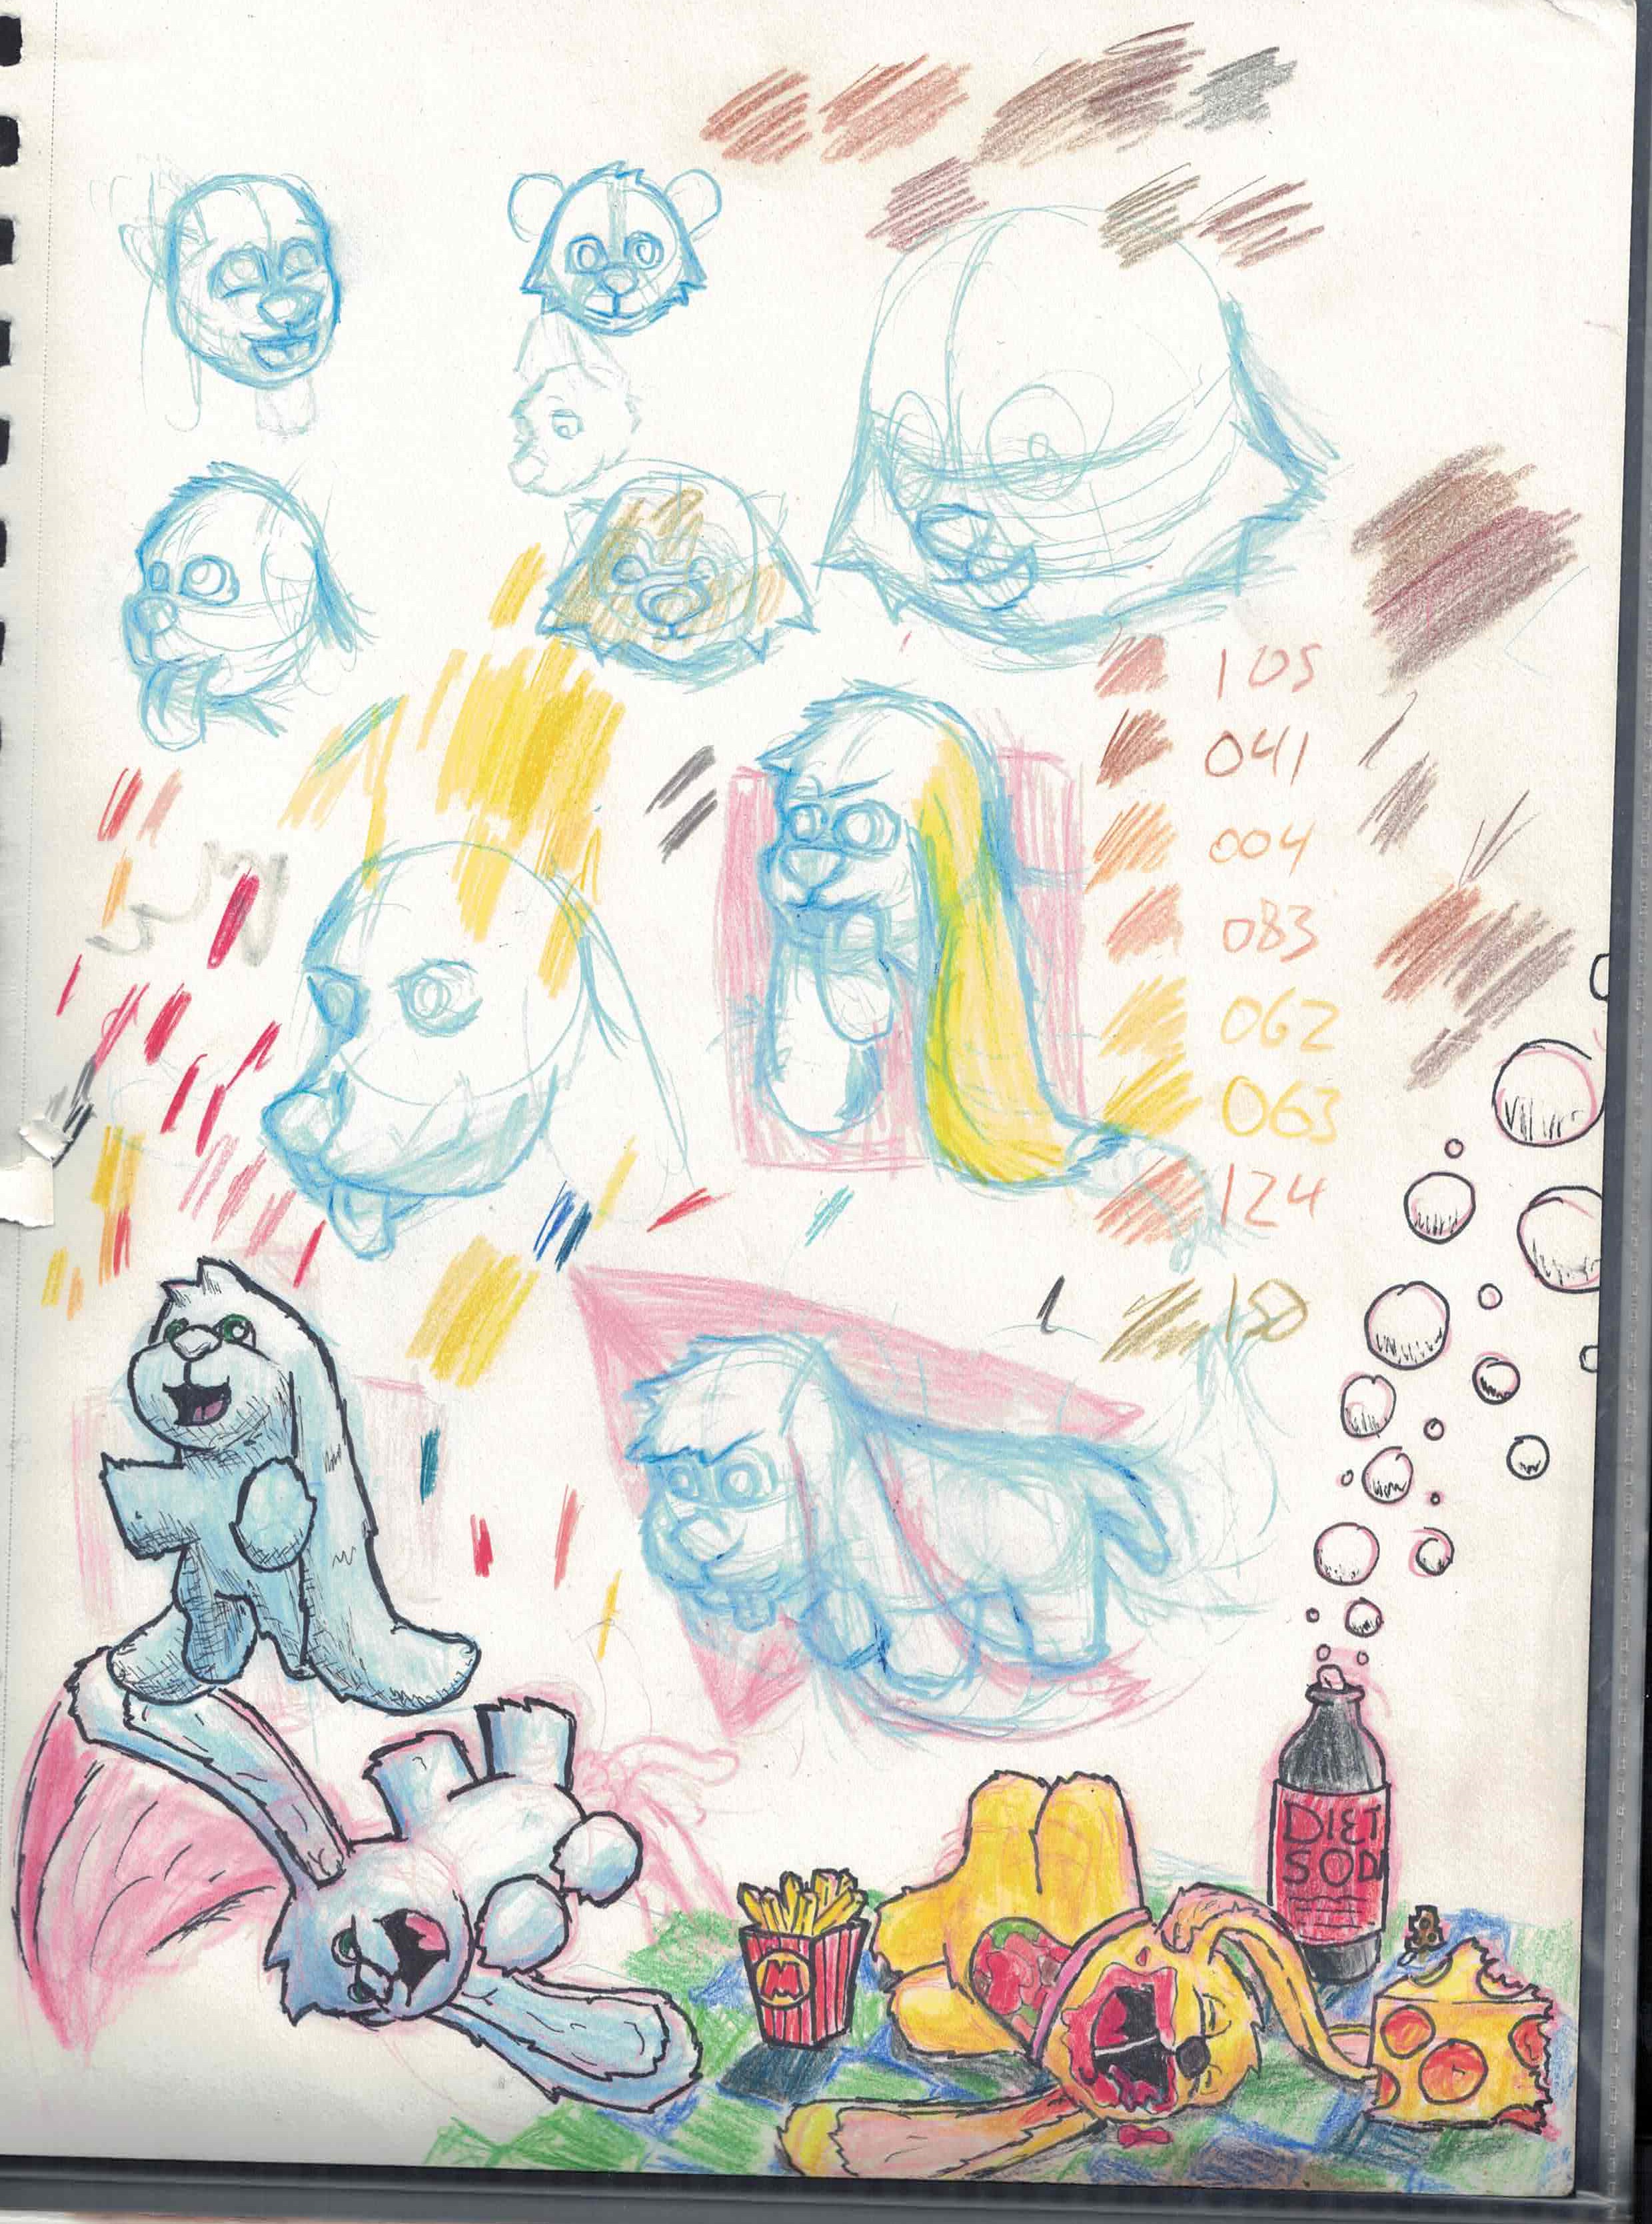 105
041
004
083
062
063
124
DIET
SOD
M